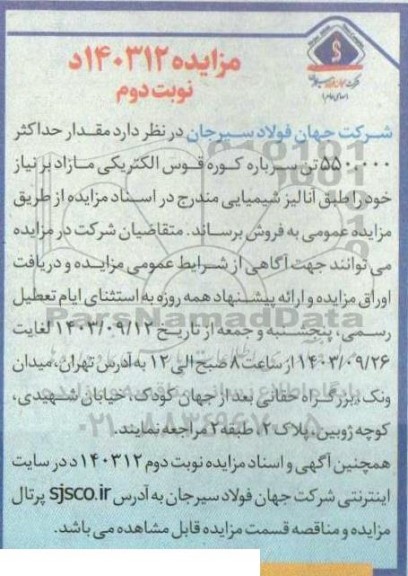 شرکت جهان فولاد سیرجان
(سهامی عام)
مزایده ۱۴۰۳۱۲د
نوبت دوم
شرکت جهان فولاد سیرجان در نظر دارد مقدار حداکثر
۵۵۰.۰۰۰ تن سرباره کوره قوس الکتریکی مازاد بر نیاز
خود را طبق آنالیز شیمیایی مندرج در اسناد مزایده از طریق
مزایده عمومی به فروش برساند. متقاضیان شرکت در مزایده
می توانند جهت آگاهی از شرایط عمومی مزایده و دریافت
اوراق مزایده و ارائه پیشنهاد همه روزه به استثنای ایام تعطیل
رسمی، پنجشنبه و جمعه از تاریخ ۱۴۰۳/۰۹/۱۲ لغایت
۱۴۰۳/۰۹/۲۶ از ساعت ۸ صبح الی ۱۲ به آدرس تهران، میدان
ونک، بزرگراه حقانی بعد از جهان کودک، خیابان شهیدی،
کوچه ژوبین، پلاک ۲، طبقه ۲ مراجعه نمایند.
همچنین آگهی و اسناد مزایده نوبت دوم ۱۴۰۳۱۲د در سایت
اینترنتی شرکت جهان فولاد سیرجان به آدرس sjsco.ir پرتال
مزایده و مناقصه قسمت مزایده قابل مشاهده می باشد.
ParsNamadData